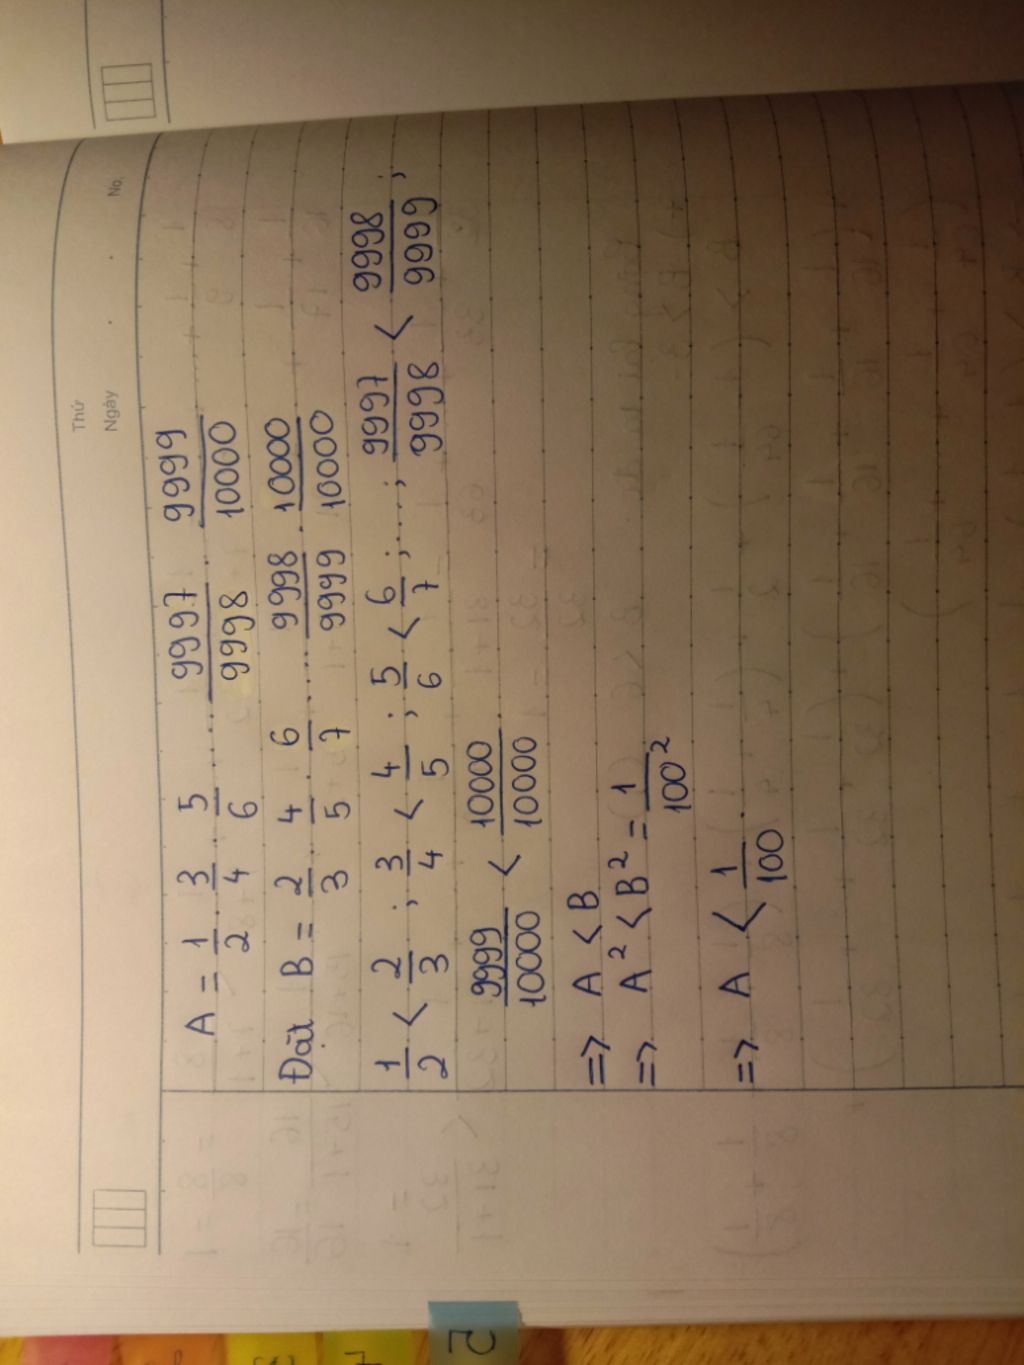 Thứ
Ngày . . No.
A = 1/2 . 3/4 . 5/6 ..... 9997/9998 . 9999/10000
Đặt B = 2/3 . 4/5 . 6/7 ..... 9998/9999 . 10000/10000
1/2 < 2/3 ; 3/4 < 4/5 ; 5/6 < 6/7 ; .... ; 9997/9998 < 9998/9999 ;
9999/10000 < 10000/10000 .
=> A < B
=> A² < B² = 1/100²
=> A < 1/100 .
2